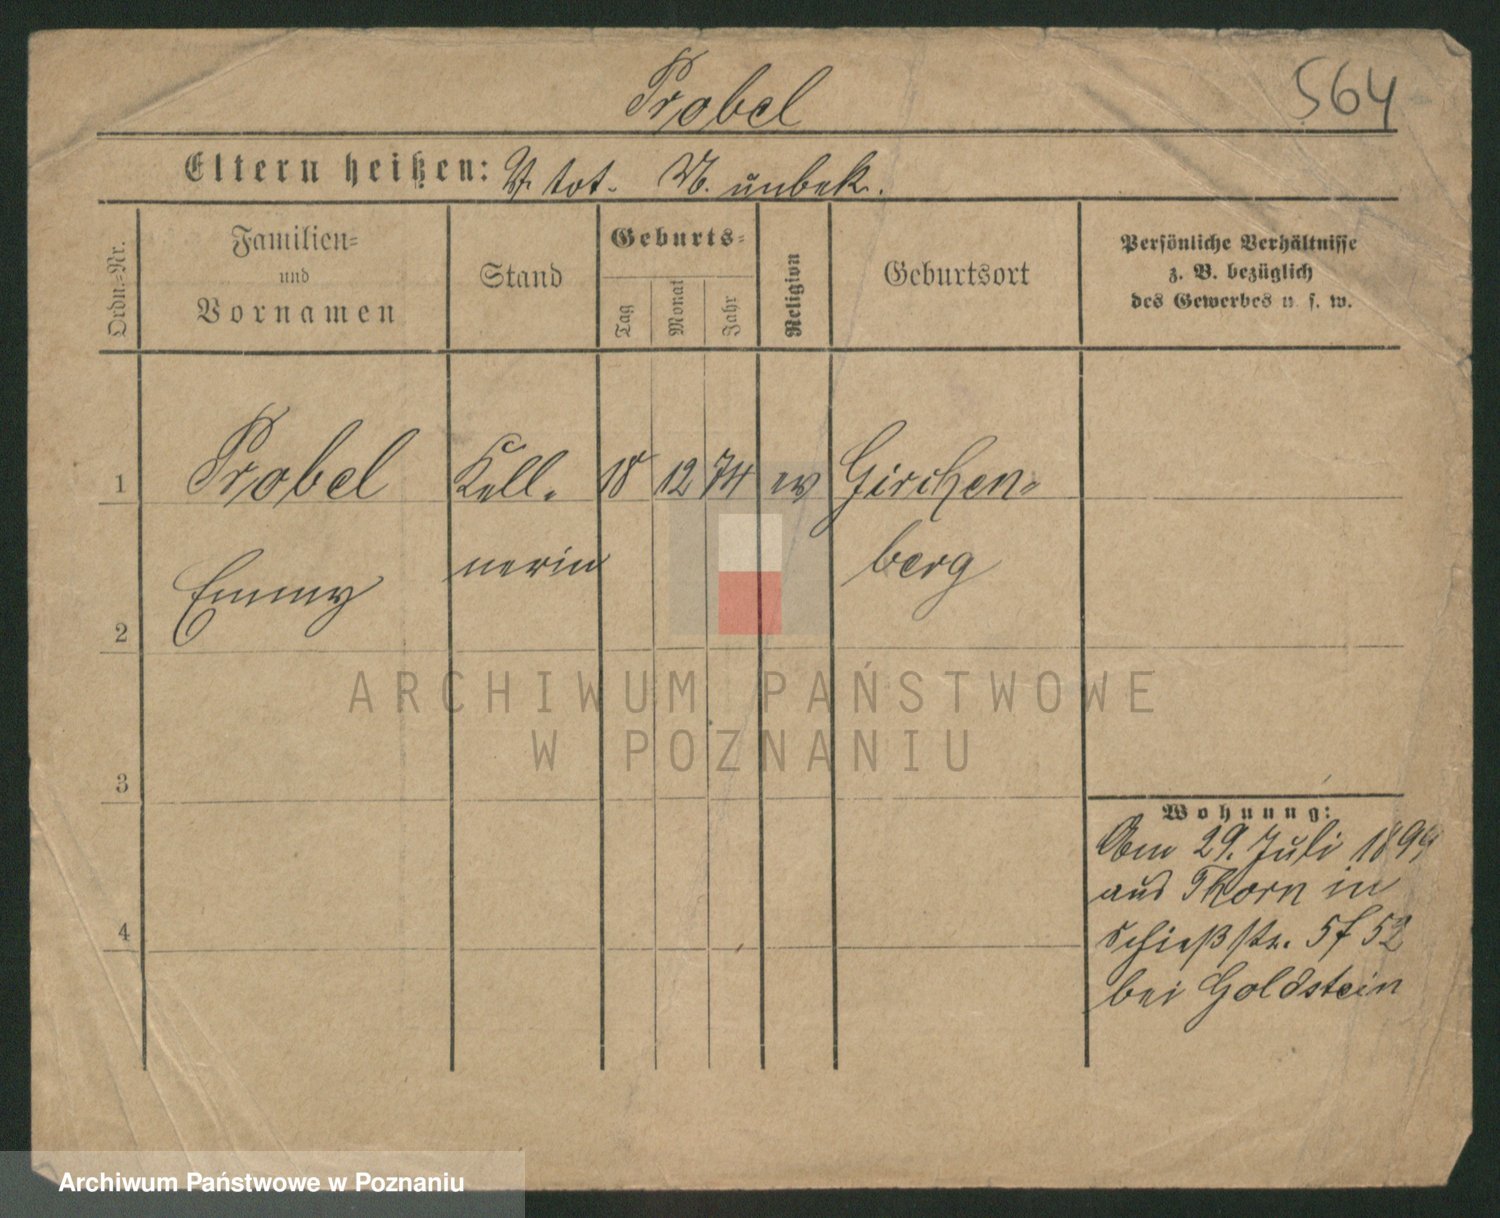 Probel
564
Eltern heißen: V. tot. M. unbek.
Ordn.=Nr.
Familien=
und
Vornamen
Stand
Geburts=
Tag
Monat
Jahr
Religion
Geburtsort
Persönliche Verhältnisse
z. B. bezüglich
des Gewerbes u. s. w.
1
Probel
Kell.
18
12
74
ev
Girchen=
Emmy
nerin
berg
2
ARCHIWUM PAŃSTWOWE
W POZNANIU
3
Wohnung:
Am 29. Juli 1899
aus Thorn in
4
Schießstr. 5 f 52
bei Goldstein
Archiwum Państwowe w Poznaniu